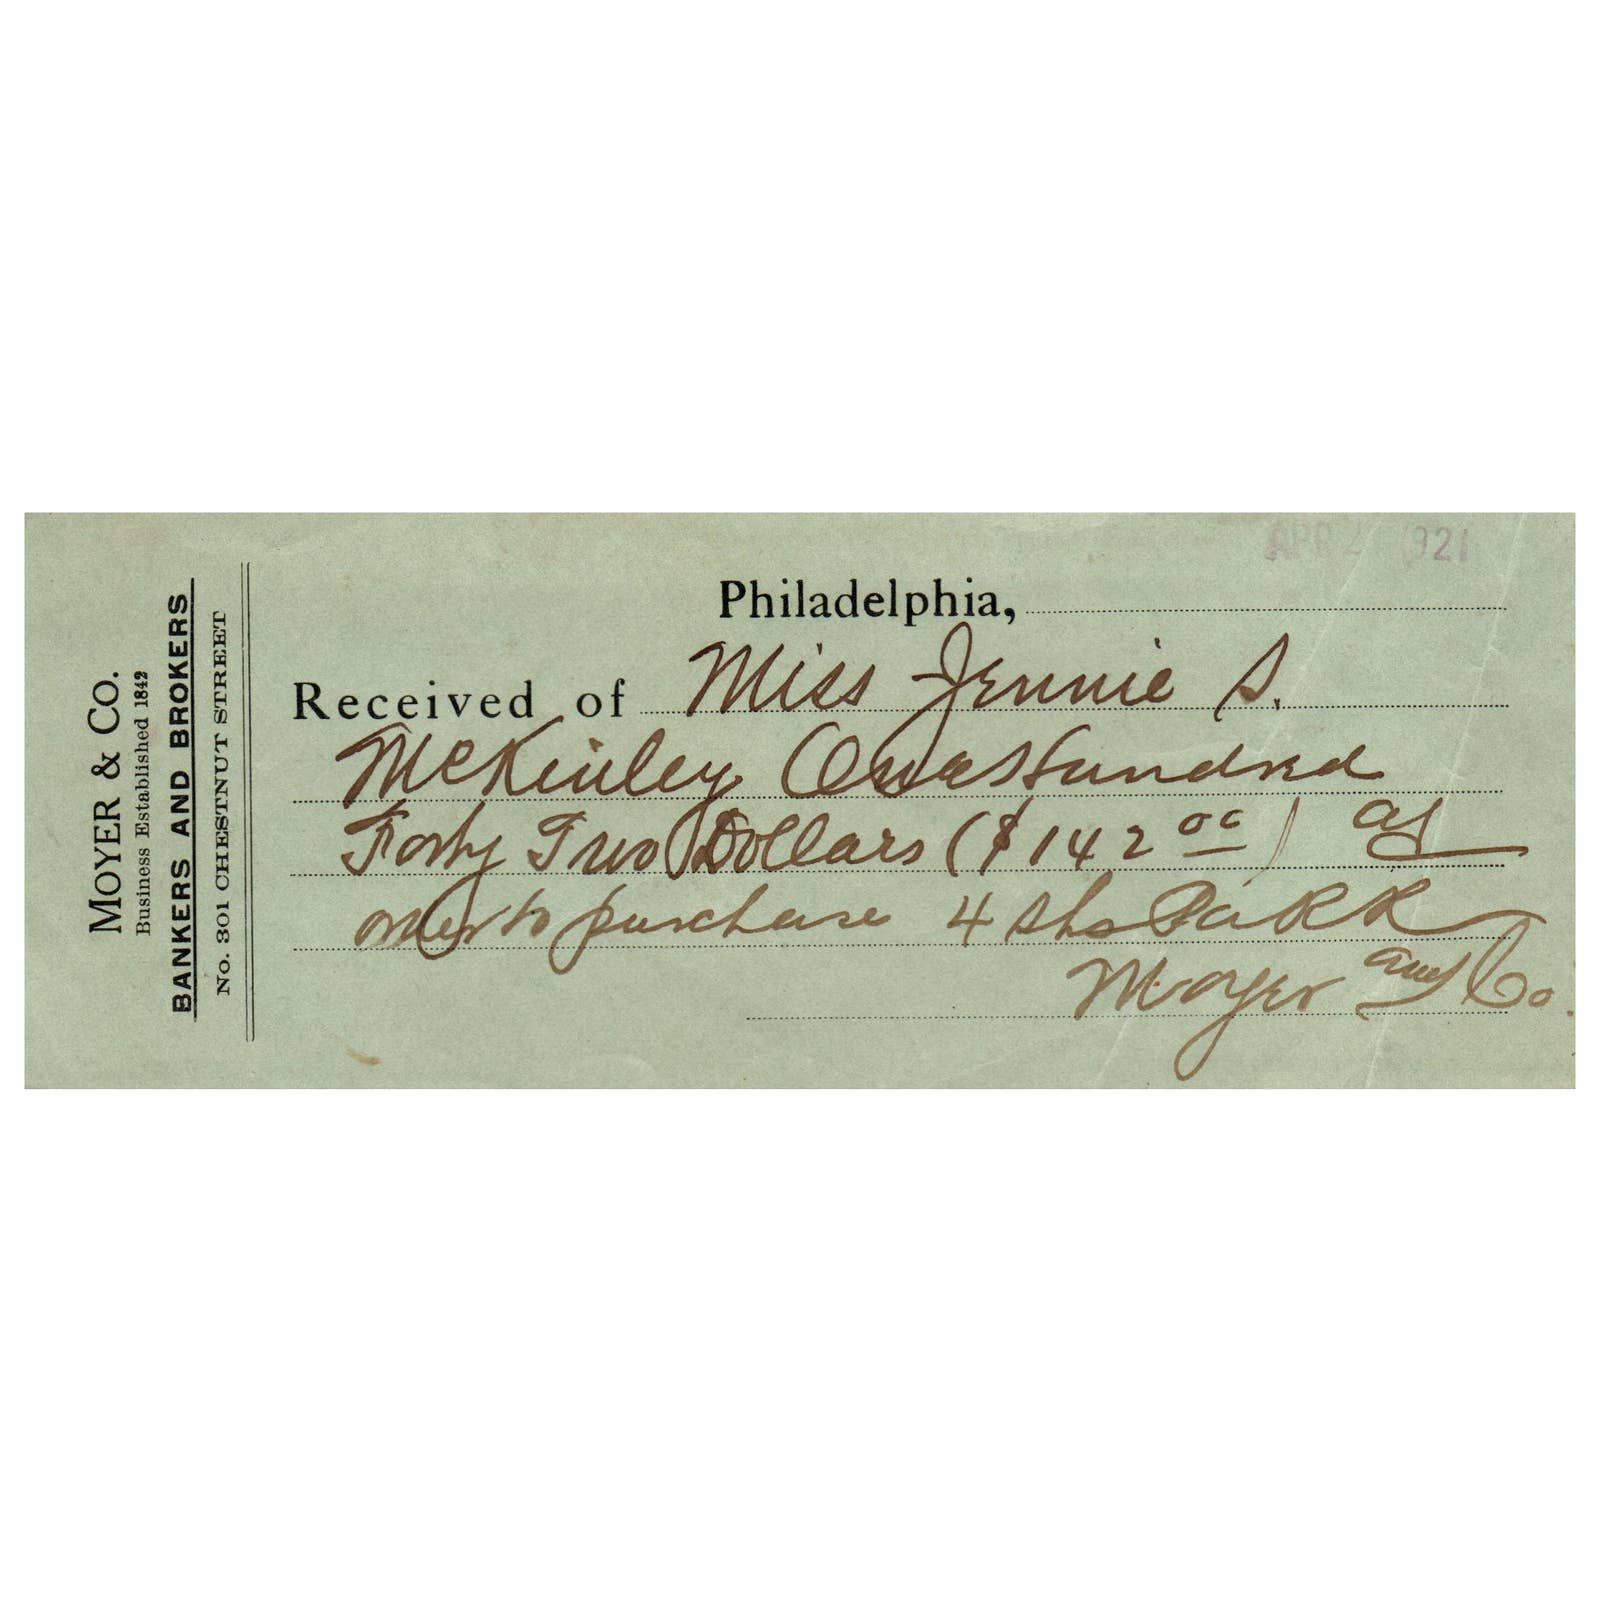 MOYER & CO.
Business Established 1842
BANKERS AND BROKERS
No. 301 CHESTNUT STREET
APR 2 921
Philadelphia,
Received of Miss Jennie S.
McKinley One Hundred
Forty Two Dollars ($142 00)
order to purchase 4 shs Pa RR
Moyer and Co.